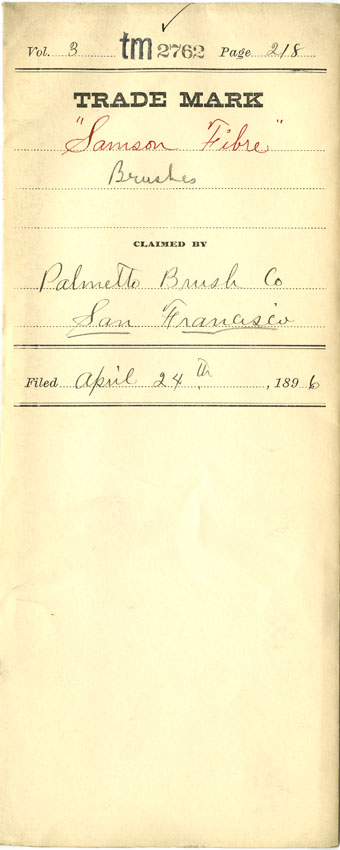 Vol. 3 tm 2762 Page 218
TRADE MARK
"Samson Fibre"
Brushes
CLAIMED BY
Palmetto Brush Co
San Francisco
Filed April 24th, 1896